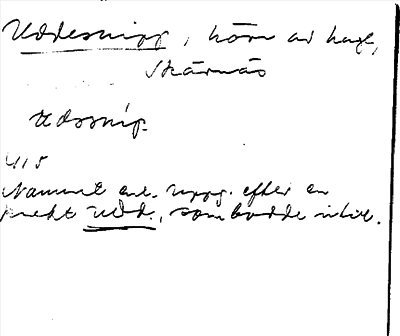 Uddesnipp, hörn av hage,
Skärnäs
Udssnip.
415
Namnet enl. uppg. efter en
prekt Udd., som bodde intill.